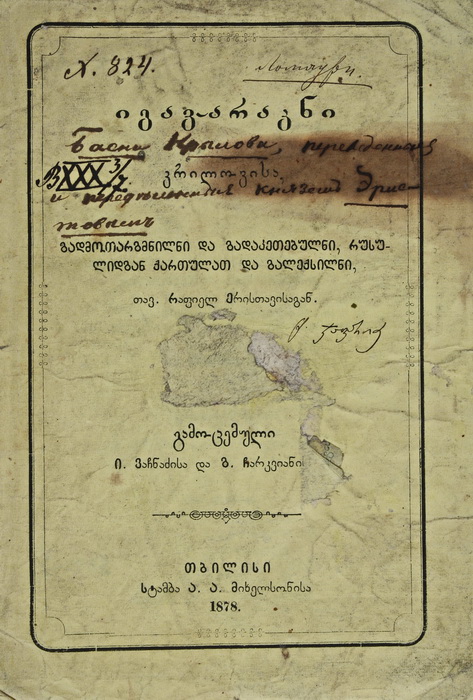 N. 824.
იგავ-არაკნი
Басни Крылова, переведенныя
კრილოვისა,
В XXX 3/7
и передѣланныя княземъ Эрис-
товымъ
გადმოთარგმნილნი და გადაკეთებულნი, რუსუ-
ლიდგან ქართულათ და გალექსილნი,
თავ. რაფიელ ერისთავისაგან.
გამო-ცემული
ი. მაჩნაძისა და გ. ჩარკვიანი
თბილისი
სტამბა ა. ა. მიხელსონისა
1878.